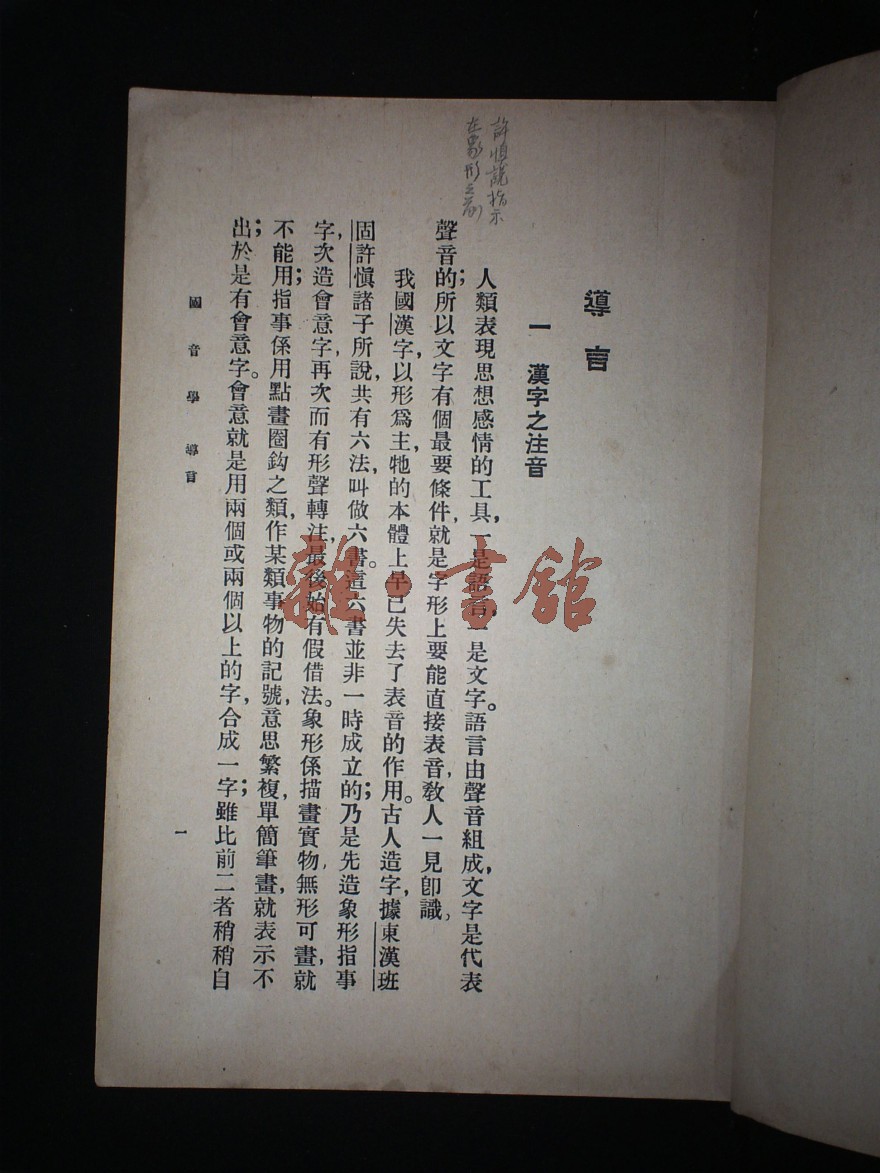 導言
一 漢字之注音
人類表現思想感情的工具，一是語言，一是文字。語言由聲音組成，文字是代表
聲音的；所以文字有個最要條件，就是字形上要能直接表音，敎人一見卽識，
我國漢字，以形爲主，牠的本體上早已失去了表音的作用。古人造字，據東漢班
固許愼諸子所說，共有六法，叫做六書。這六書並非一時成立的；乃是先造象形指事
字，次造會意字，再次而有形聲轉注，最後始有假借法。象形係描畫實物，無形可畫，就
不能用；指事係用點畫圈鈎之類，作某類事物的記號，意思繁複，單簡筆畫，就表示不
出；於是有會意字。會意就是用兩個或兩個以上的字，合成一字；雖比前二者稍稍自
國音學 導言
一
許慎說指示
在象形之前
雜·書館